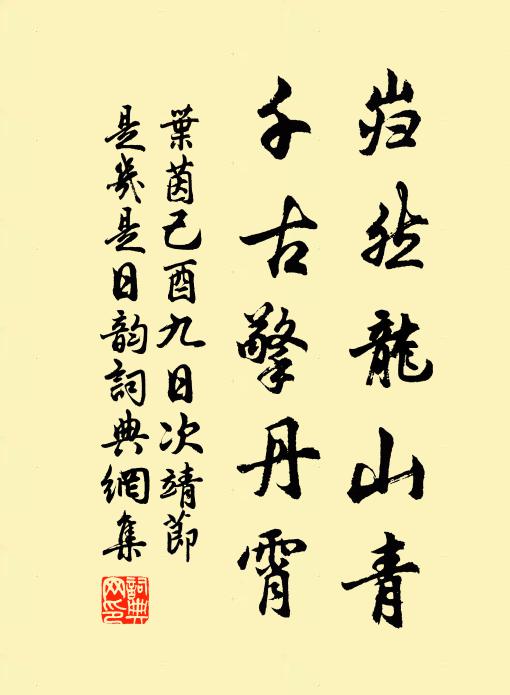 岿然龍山青
千古擎丹霄
葉茵己酉九日次靖節
是歲是日韵詞典網集
詞典网印